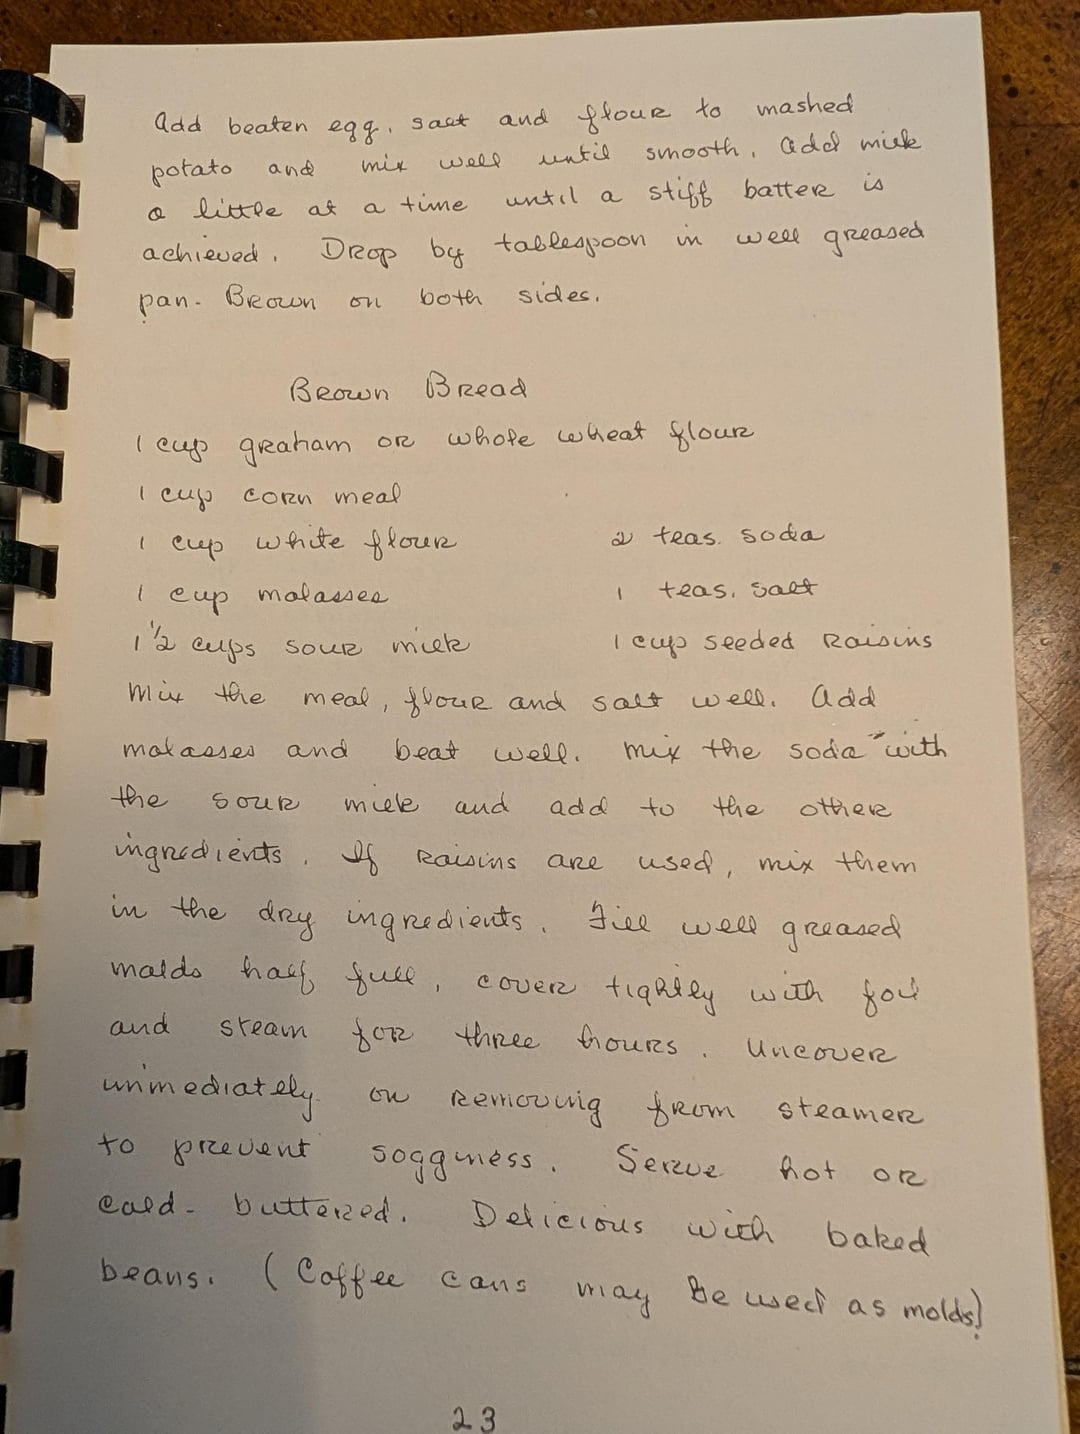 Add beaten egg, salt and flour to mashed
potato and mix well until smooth. Add milk
a little at a time until a stiff batter is
achieved. Drop by tablespoon in well greased
pan - Brown on both sides.
Brown Bread
1 cup graham or whole wheat flour
1 cup corn meal
1 cup white flour
2 teas. soda
1 cup molasses
1 teas. salt
1 1/2 cups sour milk
1 cup seeded raisins
Mix the meal, flour and salt well. Add
molasses and beat well. Mix the soda with
the sour milk and add to the other
ingredients. If raisins are used, mix them
in the dry ingredients. Fill well greased
molds half full, cover tightly with foil
and steam for three hours. Uncover
immediately on removing from steamer
to prevent sogginess. Serve hot or
cold - buttered. Delicious with baked
beans. (Coffee cans may be used as molds)
23